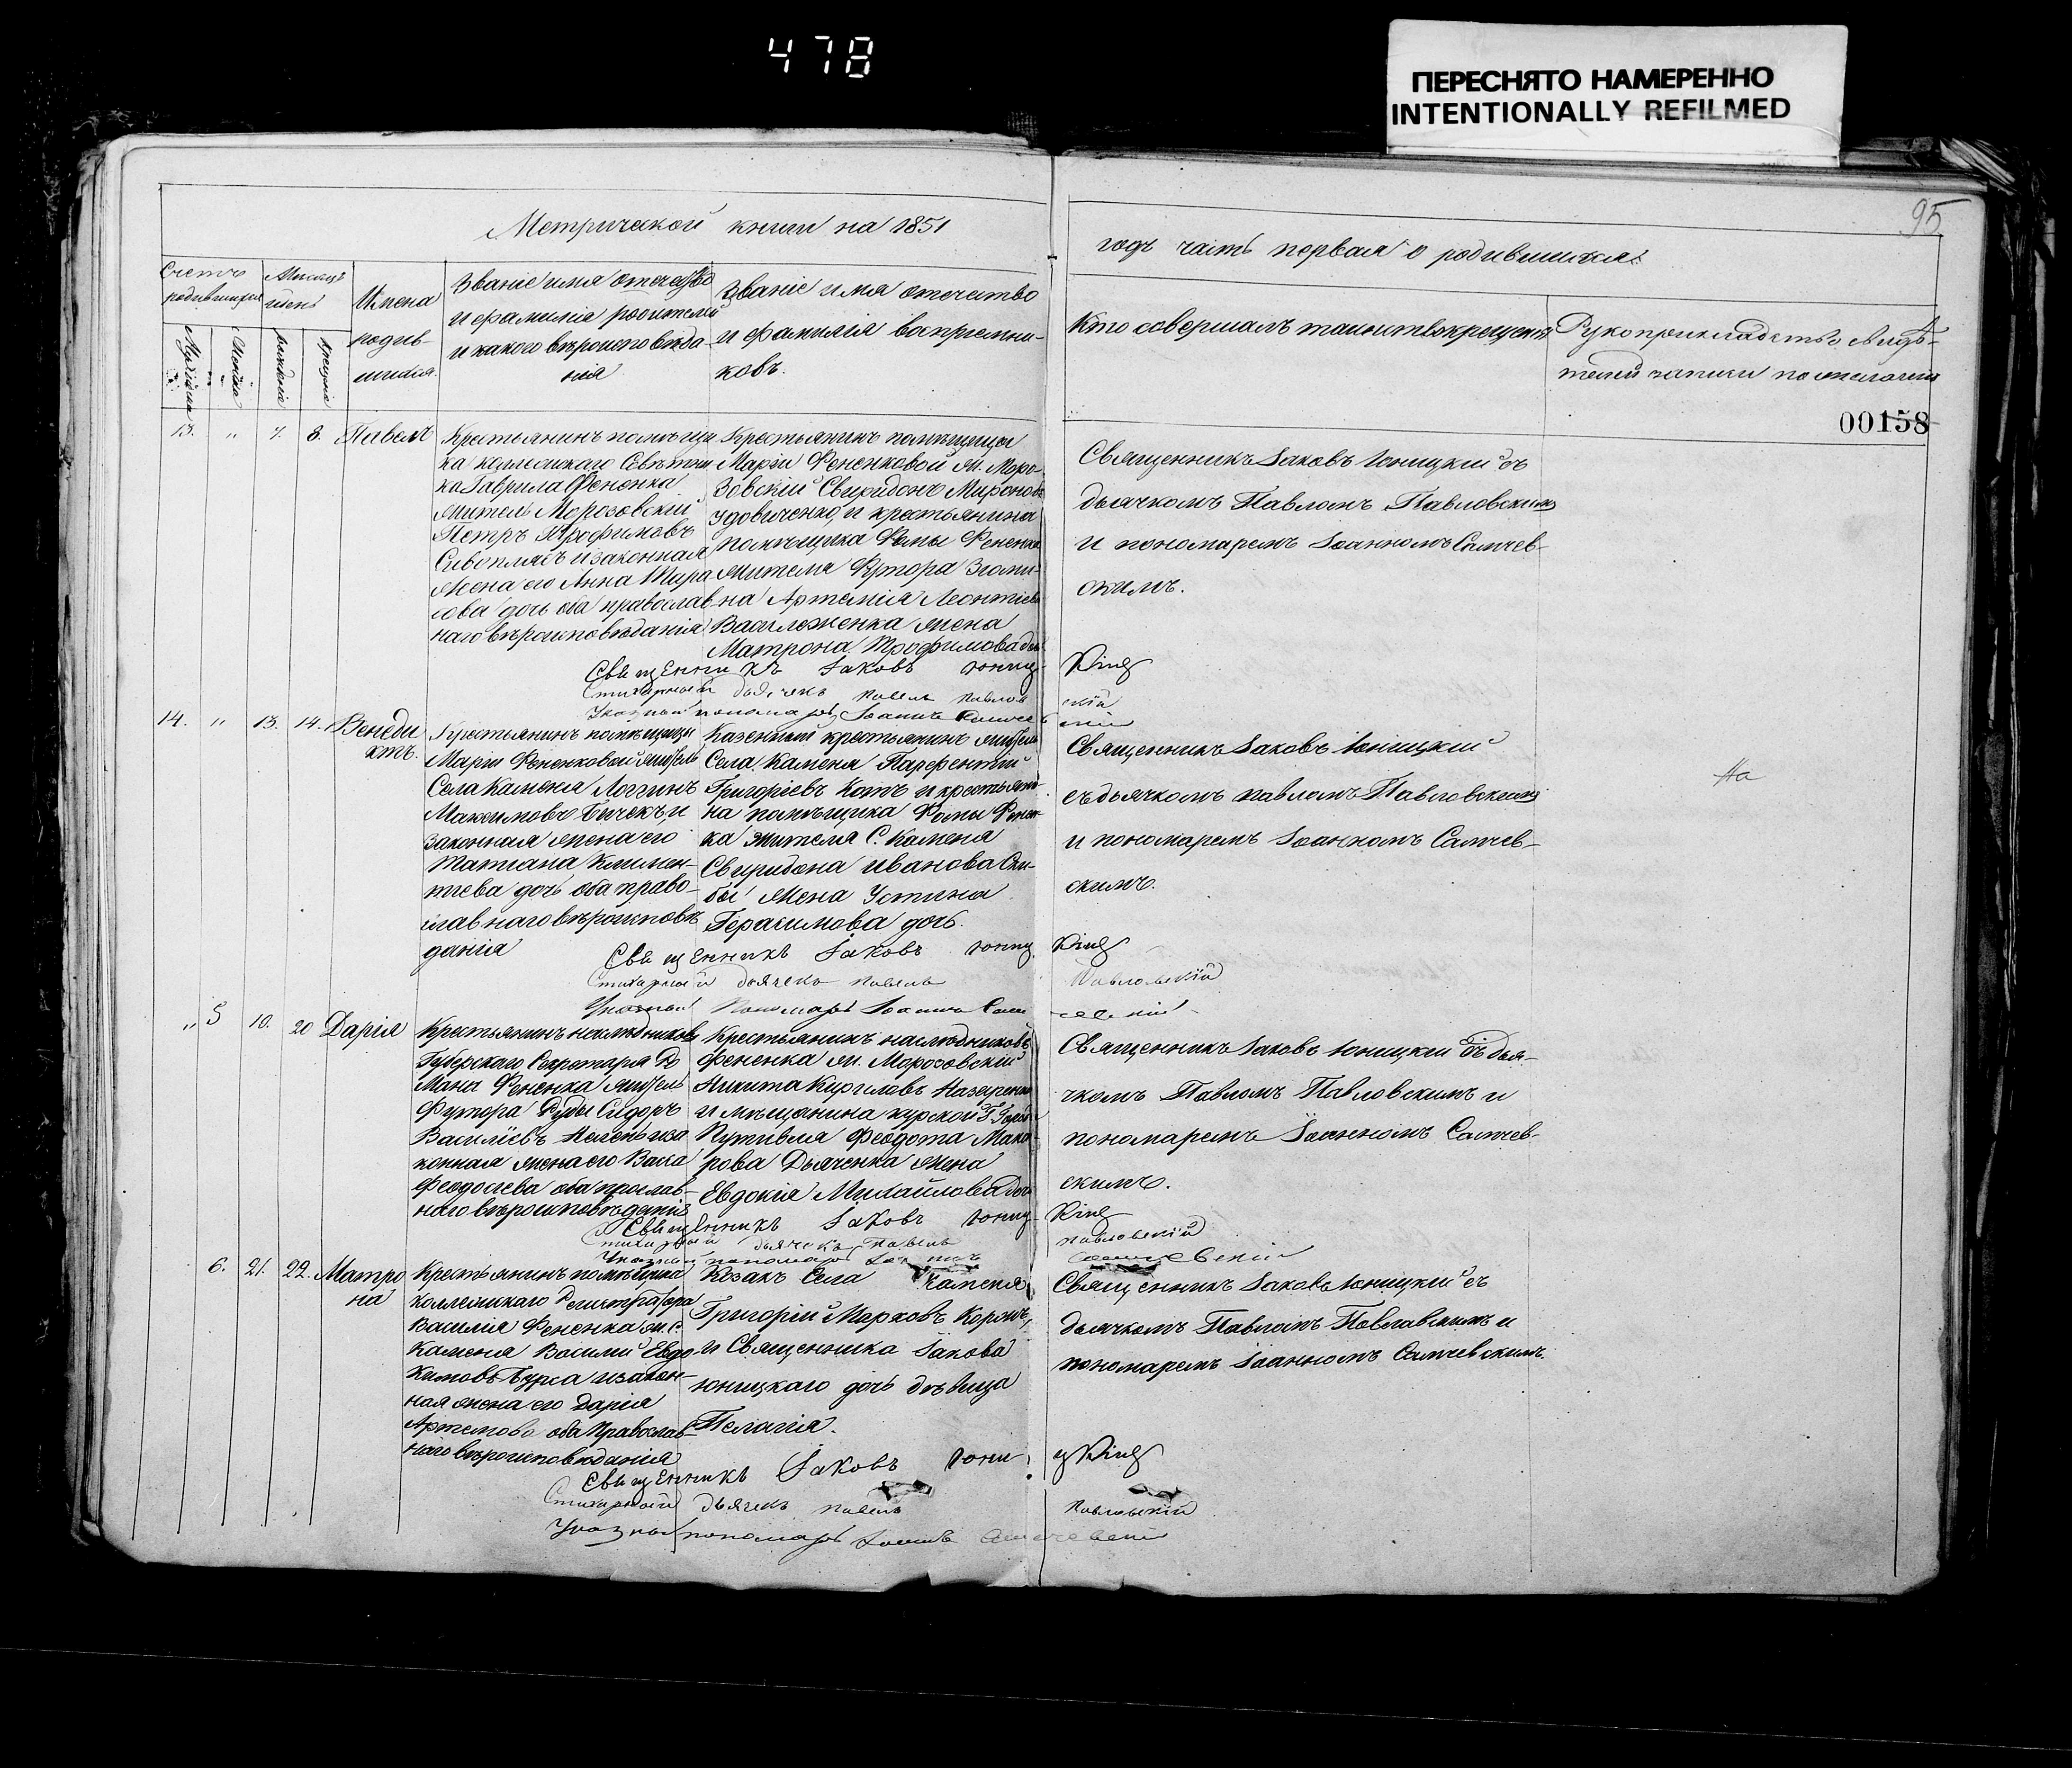 478
ПЕРЕСНЯТО НАМЕРЕННО
INTENTIONALLY REFILMED
95
Метрической книги на 1851
годъ часть первая о родившихся:
Счетъ родившихся
Мѣсяцъ день
Имена родив-
шихся.
Званіе имя отечество
и фамилія родителей
и какого вѣроисповѣда-
нія
Званіе имя отечество
и фамилія воспріемни-
ковъ.
Кто совершалъ таинство крещенія
Рукоприкладство свидѣ-
телей записи по желанію
00158
13. " 7. 8. Павелъ
Крестьянинъ помѣщи
ка коллежскаго Совѣтни
ка Гаврила Фененка
житель Морозовскій
Петръ Трофимовъ
и законная
жена его Анна
дочь оба православ-
наго вѣроисповѣданія
Крестьянинъ помѣщицы
Маріи Фененковой ж. Моро-
зовскій Свиридонъ Мироновъ
Удовиченко, и крестьянина
помѣщика Фомы Фененка
жителя Футора
на Артемія Леонтіева
Василеженка жена
Матрона Трофимова дочь
Священникъ Іаковъ Юницкій съ
дьячкомъ Павломъ Павловскимъ
и пономаремъ Іоанномъ Самчев-
скимъ.
Священникъ Іаковъ Юниц кій
Стихарный дьячекъ Павелъ Павлов скій
Указный пономарь Іоаннъ Самчев скій
14. " 13. 14. Венеди
ктъ.
Крестьянинъ помѣщицы
Маріи Фененковой житель
Села Каменя Логгинъ
Максимовъ Бичекъ, и
законная жена его
Татиана Климен-
тіева дочь оба право-
славнаго вѣроисповѣ
данія
Казенный крестьянинъ житель
Села Каменя Парфентій
Григоріевъ Котъ и крестьяни-
на помѣщика Фомы Фенен-
ка жителя С. Каменя
Свиридона Иванова Ски-
бы жена Устина
Герасимова дочь.
Священникъ Іаковъ Юницкій
съ дьячкомъ Павломъ Павловскимъ
и пономаремъ Іоанномъ Самчев-
скимъ.
На
Священникъ Іаковъ Юниц кій
Стихарный дьячекъ Павелъ Павловскій
Указный Пономарь Іоаннъ Самчевскій
" 5 10. 20 Дарія
Крестьянинъ наслѣдниковъ
Губерскаго Секретаря Ро
мана Фененка житель
Футора Руды Сидоръ
Василіевъ и за
конная жена его Васса
Феодосіева оба праслав-
наго вѣроисповѣданія
Крестьянинъ наслѣдниковъ
Фененка ж. Морозовскій
Никита Кириловъ Назаренко
и мѣщанина курской Г. Города
Путивля Феодота Мака-
рова Дьяченка жена
Евдокія Михайлова дочь
Священникъ Іаковъ Юницкій съ дья-
чкомъ Павломъ Павловскимъ и
пономаремъ Іоанномъ Самчев-
скимъ.
Священникъ Іаковъ Юниц кій
Стихарный дьячекъ Павелъ Павловскій
Указный пономарь Іоаннъ Самчевскій
6. 21. 22. Матро
на
Крестьянинъ помѣщика
коллежскаго Регистратора
Василія Фененка ж. С.
Каменя Василій Евдо
кимовъ Бурса и закон-
ная жена его Дарія
Артемова оба Православ-
наго вѣроисповѣданія
Козакъ Села Каменя
Григорій Марковъ Корожъ,
и Священника Іакова
Юницкаго дочь дѣвица
Пелагія.
Священникъ Іаковъ Юницкій съ
дьячкомъ Павломъ Павлавскимъ и
пономаремъ Іоанномъ Самчевскимъ.
Священникъ Іаковъ Юни цкій
Стихарный дьячекъ Павелъ Павловскій
Указный пономарь Іоаннъ Самчевскій